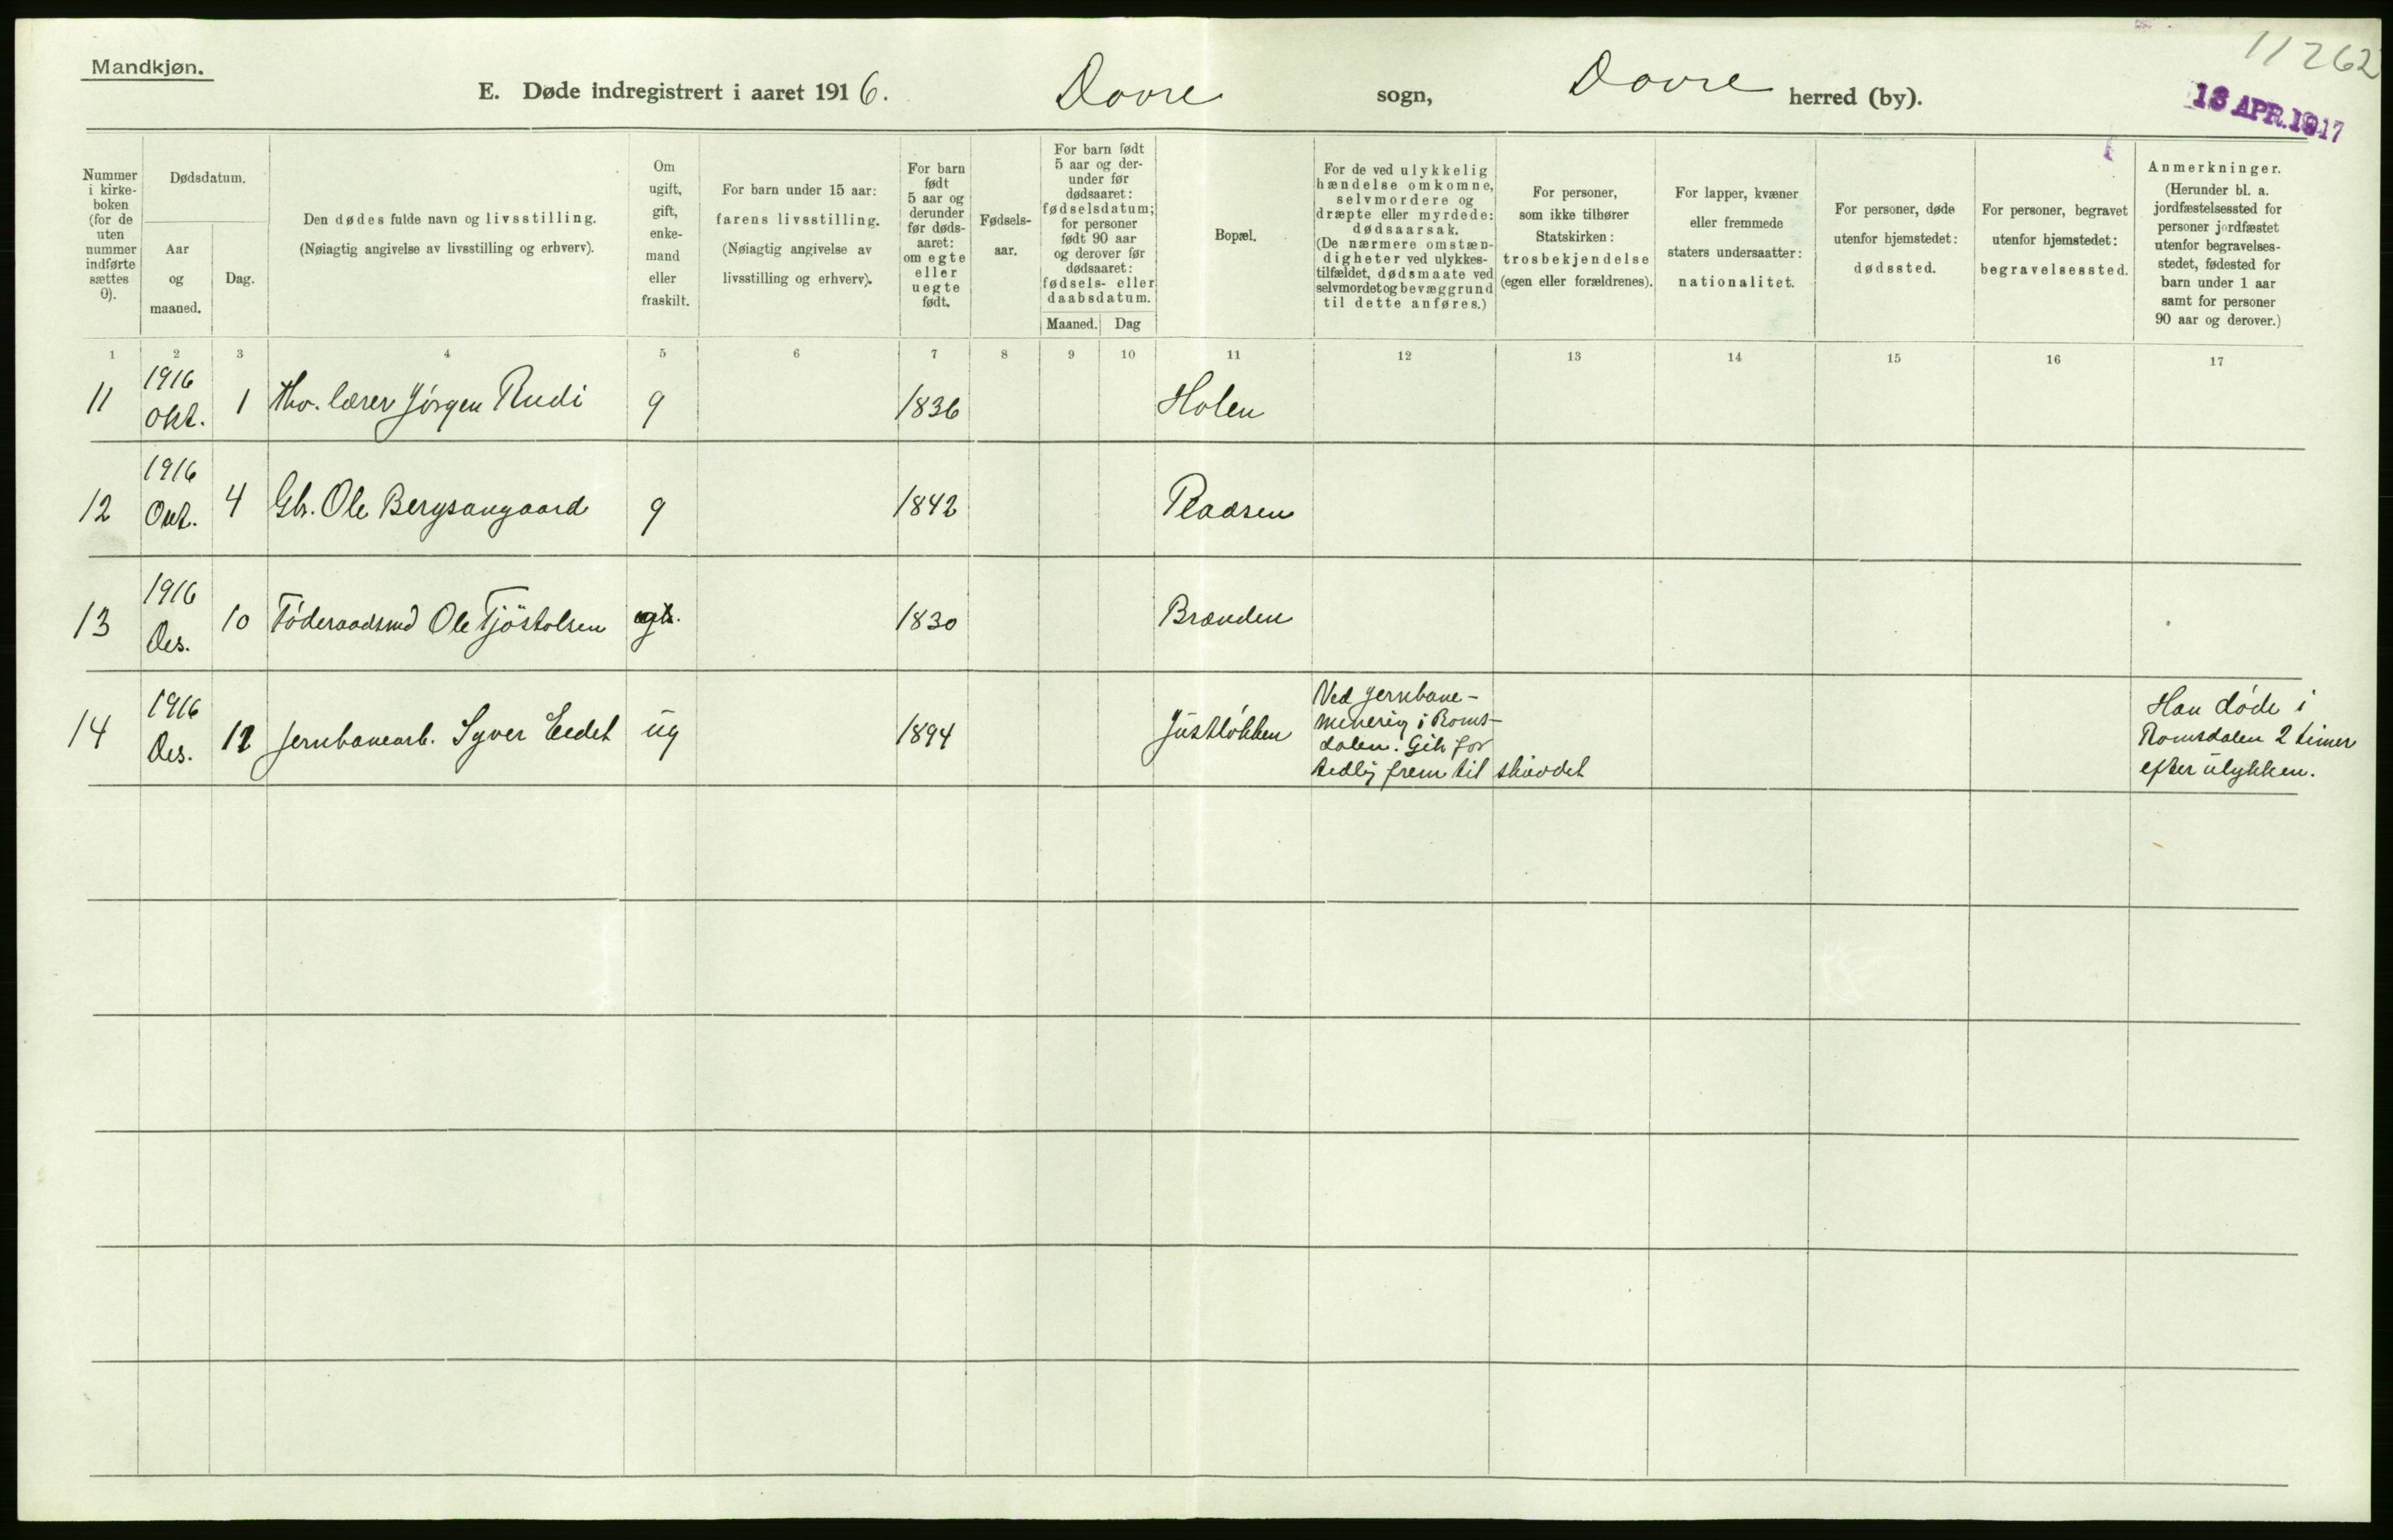 Mandkjøn.
11262
18 APR. 1917
E. Døde indregistrert i aaret 1916. Dovre sogn, Dovre herred (by).
Nummer
i kirke-
boken
(for de
uten
nummer
indførte
sættes
0).
Dødsdatum.
Aar
og
maaned.
Dag.
Den dødes fulde navn og livsstilling.
(Nøiagtig angivelse av livsstilling og erhverv).
Om
ugift,
gift,
enke-
mand
eller
fraskilt.
For barn under 15 aar:
farens livsstilling.
(Nøiagtig angivelse av
livsstilling og erhverv).
For barn
født
5 aar og
derunder
før døds-
aaret:
om egte
eller
uegte
født.
Fødsels-
aar.
For barn født
5 aar og der-
under før
dødsaaret:
fødselsdatum;
for personer
født 90 aar
og derover før
dødsaaret:
fødsels- eller
daabsdatum.
Maaned. Dag
Bopæl.
For de ved ulykkelig
hændelse omkomne,
selvmordere og
dræpte eller myrdede:
dødsaarsak.
(De nærmere omstæn-
digheter ved ulykkes-
tilfældet, dødsmaate ved
selvmordet og bevæggrund
til dette anføres.)
For personer,
som ikke tilhører
Statskirken:
trosbekjendelse
(egen eller forældrenes).
For lapper, kvæner
eller fremmede
staters undersaatter:
nationalitet.
For personer, døde
utenfor hjemstedet:
dødssted.
For personer, begravet
utenfor hjemstedet:
begravelsessted.
Anmerkninger.
(Herunder bl. a.
jordfæstelsessted for
personer jordfæstet
utenfor begravelses-
stedet, fødested for
barn under 1 aar
samt for personer
90 aar og derover.)
1 2 3 4 5 6 7 8 9 10 11 12 13 14 15 16 17
1916
11 Okt. 1 lærer Jørgen Rudi g 1836 Holen
1916
12 Okt. 4 Gbr. Ole Bergsangaard g 1842 Pladsen
1916
13 Des. 10 Føderaadsmd Ole Tjöstolsen 1830 Brænden
1916
14 Des. 12 Jernbanearb. Syver Eedet ug 1894 Justløkken
Ved jernbane-
minering i Roms-
dalen. Gik for
tidlig frem til skuddet
Han døde i
Romsdalen 2 timer
efter ulykken.